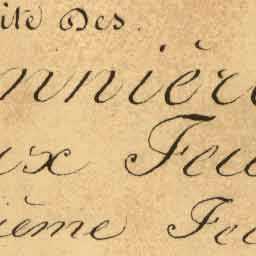 ité Des
nnièr
ux Feu
ième Fe